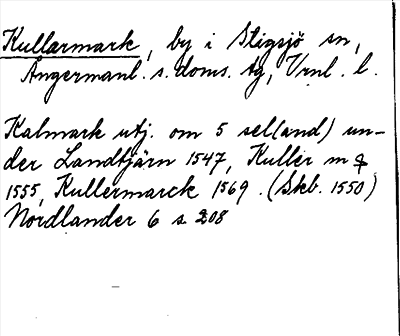 Kullarmark, by i Stigsjö sn,
Ångermanl. s. doms. tg, Vrnl. l.
Kalmark utj. om 5 sel(and) un-
der Landtjärn 1547, Kuller m
1555, Kullermarck 1569. (Skb. 1550)
Nordlander 6 s 208